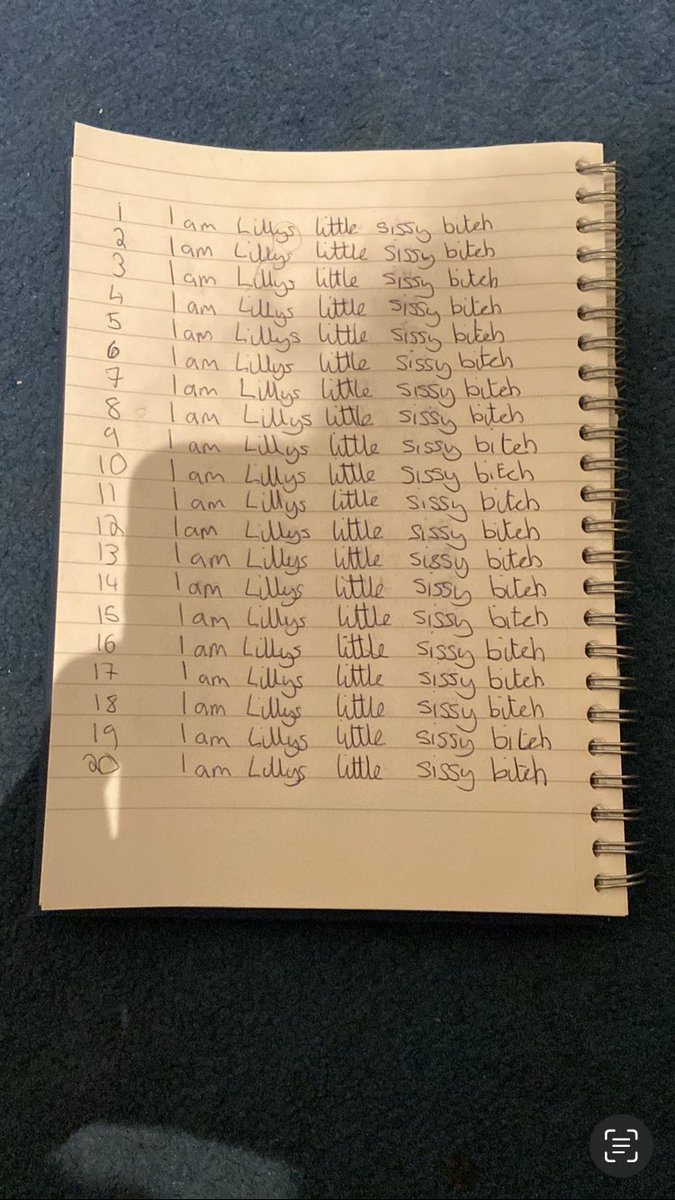 1 I am Lillys little sissy bitch
2 I am Lillys little sissy bitch
3 I am Lillys little sissy bitch
4 I am Lillys little sissy bitch
5 I am Lillys little sissy bitch
6 I am Lillys little sissy bitch
7 I am Lillys little sissy bitch
8 I am Lillys little sissy bitch
9 I am Lillys little sissy bitch
10 I am Lillys little sissy bitch
11 I am Lillys little sissy bitch
12 I am Lillys little sissy bitch
13 I am Lillys little sissy bitch
14 I am Lillys little sissy bitch
15 I am Lillys little sissy bitch
16 I am Lillys little sissy bitch
17 I am Lillys little sissy bitch
18 I am Lillys little sissy bitch
19 I am Lillys little sissy bitch
20 I am Lillys little sissy bitch